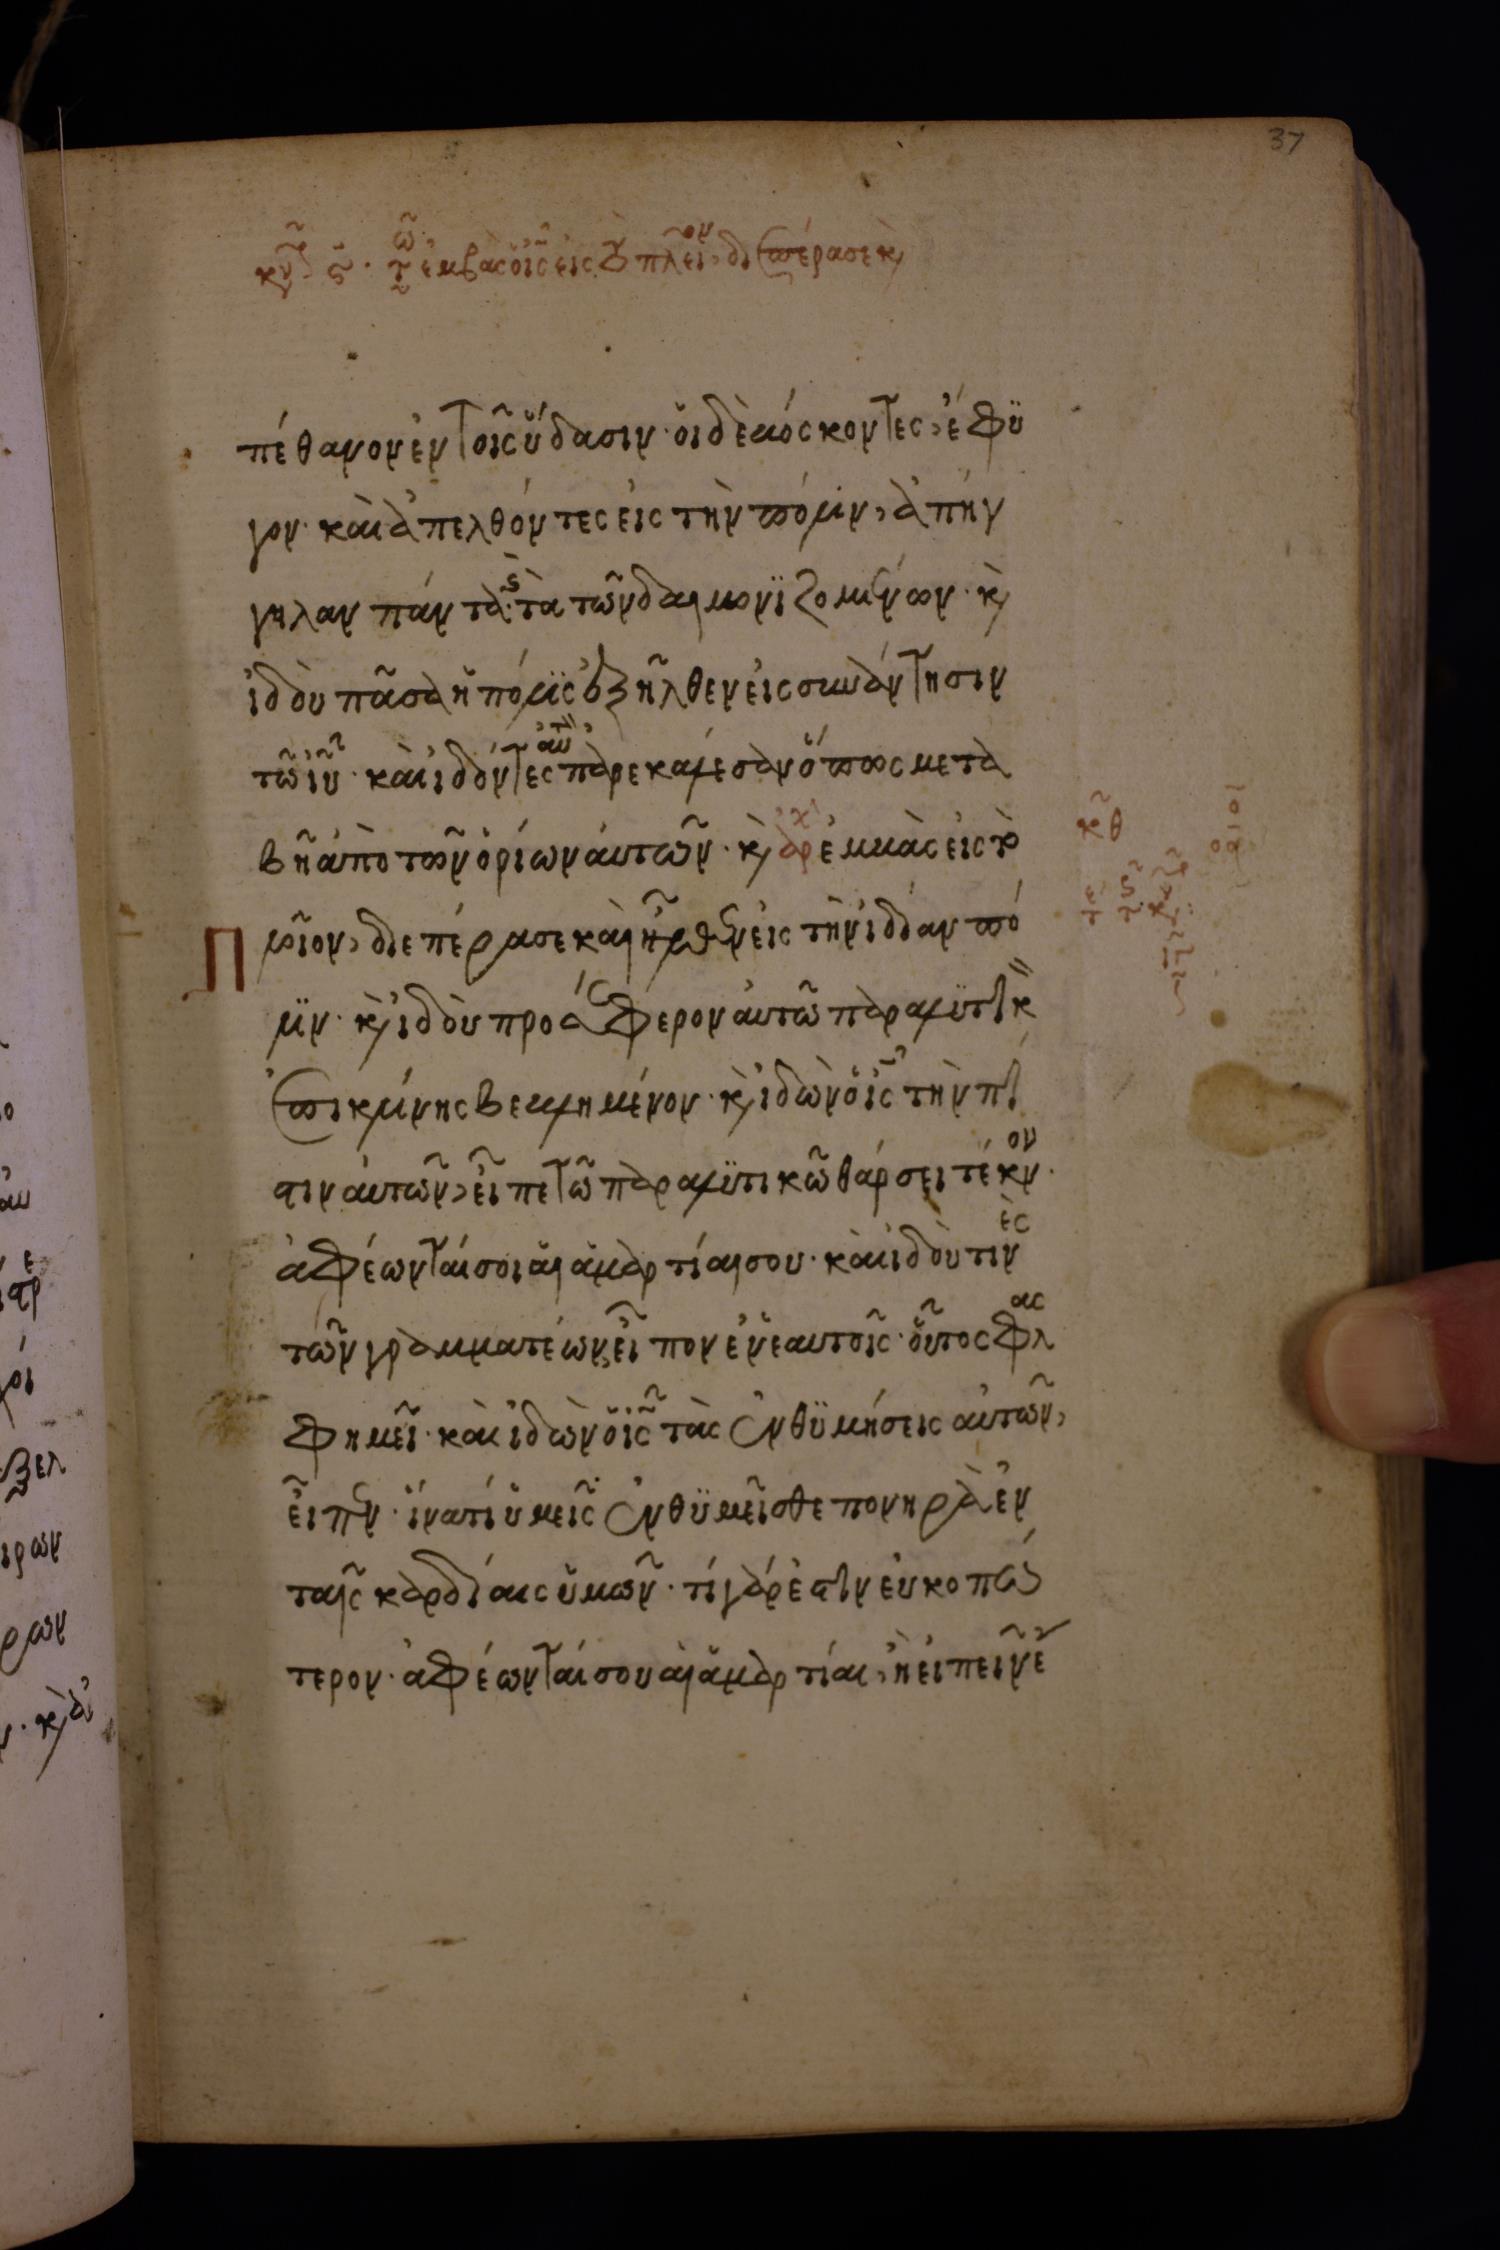 37
ἐμβὰς ὁ ις εἰς πλει διεπέρασε κ
πέθανον ἐν τοῖς ὕδασιν· ὁι δὲ βόσκοντες, ἔφυ
γον· καὶ ἀπελθόντες εἰς τὴν πόλιν, ἀπήγ
γηλαν πάντα· τὰ τῶν δαιμονϊζομένων· κ
ἰδοὺ πᾶσα ἡ πόλϊς ἐξῆλθεν εἰς συνάντησιν
τῶ ιυ· καὶ ἰδόντες αυτ παρεκάλεσαν ὅπως μετα
βῆ ἀπὸ τῶν ὁρίων ἀυτῶν· κ ἐμβὰς εἰς τὸ
Π
λοῖον, διεπέρασε καὶ ἦλθεν εἰς τὴν ἰδίαν πό
λϊν· κ ἰδοὺ προσέφερον ἀυτῶ παραλϋτικ
ἐπι κλίνης βεβλημένον· κ ἰδὼν ὁ ις τὴν πί
στιν αυτῶν, εἶπε τῶ παραλϋτικῶ θάρσει τέκνον·
ἀφέωνταί σοι ἁι ἁμαρτίαι σου· καὶ ἰδού τινὲς
τῶν γραμματέων, εἶπον ἐν ἑαυτοῖς· οὗτος βλας
φημεῖ· καὶ ἰδὼν ὁ ις τὰς ἐνθϋμήσεις αὐτῶν,
εἶπεν· ἵνατί ὑμεῖς ἐνθϋμεῖσθε πονηρὰ ἐν
ταῖς καρδίαις ὑμῶν· τί γάρ ἐστιν εὐκοπώ
τερον· ἀφέωνταί σου ἁι ἁμαρτίαι, ἢ εἰπεῖν ἔ
κθ